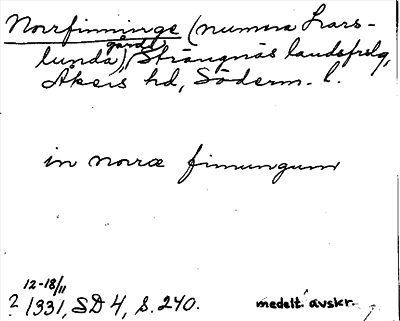 Norrfinninge (numera Lars-
lunda), gård, Strängnäs landsfrslg,
Åkers hd, Söderm. l.
in norræ finnungum
12-18/11
? 1331, SD 4, s. 240. medelt. avskr.